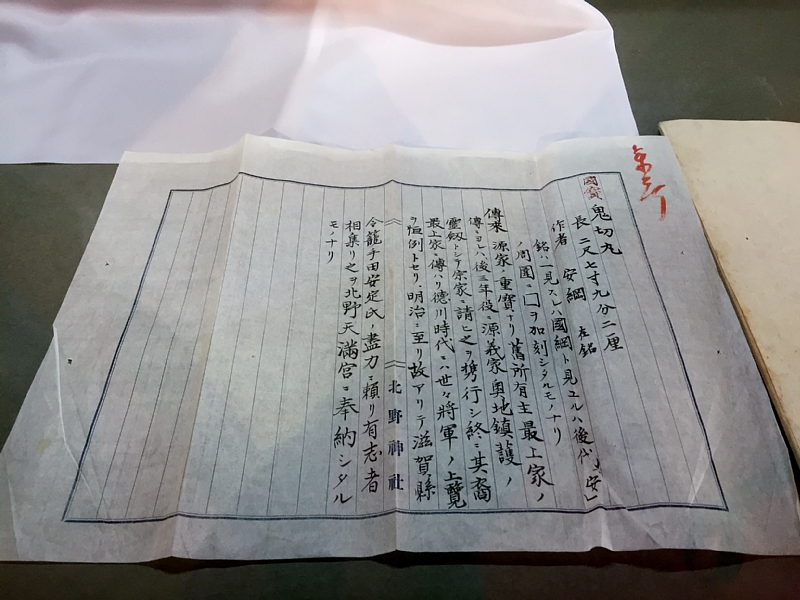 國寳 鬼切丸
長 二尺七寸九分二厘
作者 安綱 在銘
銘ハ一見スレハ國綱ト見ユルハ後代「安」
ノ周圍ニ囗ヲ加刻シタルモノナリ
傳来 源家ノ重寶ナリ舊所有主最上家ノ
傳ニヨレハ後三年役ニ源義家奥地鎮護ノ
霊剱トシテ宗家ニ請ヒ之ヲ携行シ終ニ其裔
最上家ニ傳ハリ徳川時代ニハ世々將軍ノ上覧
ヲ恒例トセリ明治ニ至リ故アリテ滋賀縣
北野神社
令籠手田安定氏ノ盡力ニ頼リ有志者
相集リ之ヲ北野天滿宮ニ奉納シタル
モノナリ